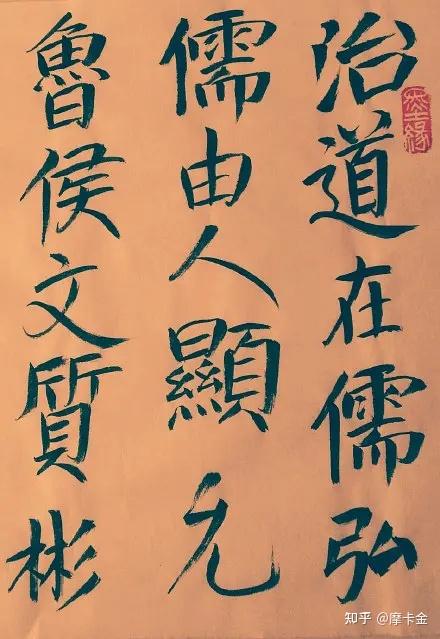 治道在儒弘
儒由人顯允
魯侯文質彬
知乎 @摩卡金